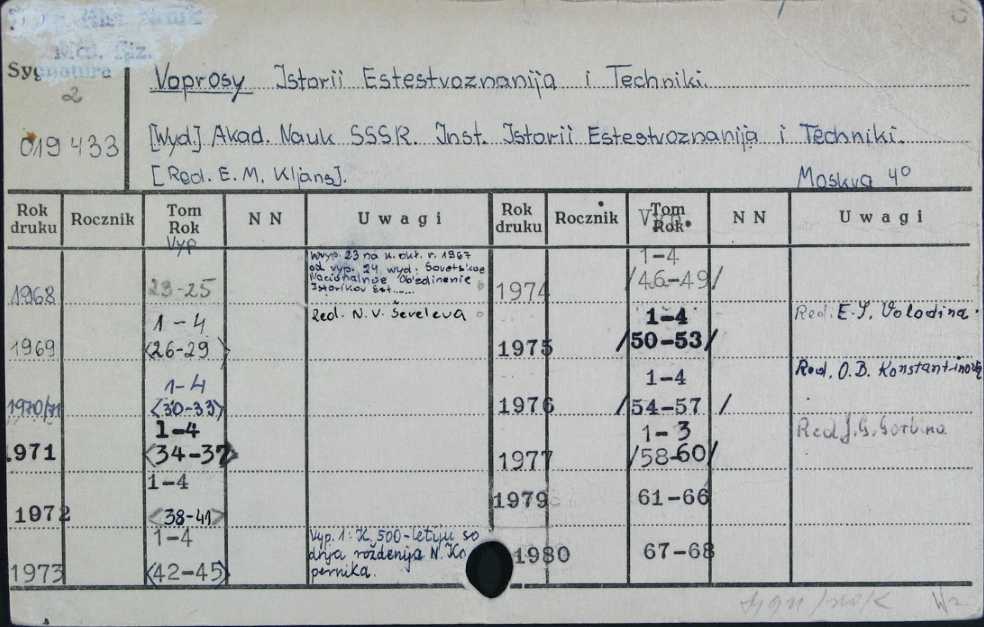 Sygnatura
2
019433
Voprosy Istorii Estestvoznanija i Techniki.
[Wyd.] Akad. Nauk SSSR. Inst. Istorii Estestvoznanija i Techniki.
[Red. E. M. Kljans]. Moskva 4°
Rok druku Rocznik Tom Rok NN Uwagi Rok druku Rocznik Tom Rok NN Uwagi
Vyp
1968 23-25
23 na k. okt. r. 1967
od vyp. 24 wyd. Sovetskoe
Nacionalnoe Obedinenie
Istorikov Est......
1974 1-4
/46-49/
1969 1-4
<26-29>
Red. N. V. Ševeleva
1975 1-4
/50-53/
Red. E. I. Volodina.
1970/71 1-4
<30-33>
1976 1-4
/54-57 /
Red. O. B. Konstantinova
1971 1-4
<34-37>
1977 1-3
/58-60/
Red. J. G.
1972 1-4
<38-41>
1979 61-66
1973 1-4
<42-45>
Vyp. 1: K 500-letiju so
dnja roždenija N. Ko
pernika.
1980 67-68